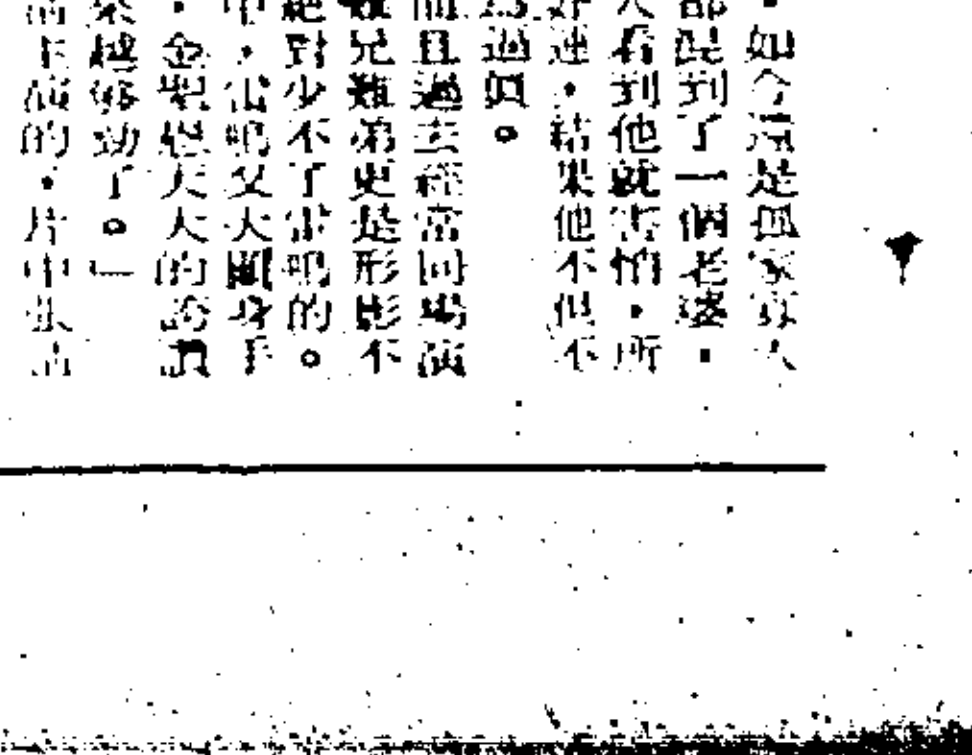 ，如今還是孤家寡人
都混到了一個老婆，
人看到他就害怕，所
好運，結果他不但不
過癮。
而且過去經常同場演
難兄難弟更是形影不
絕對少不了雷鳴的。
中，雷鳴又大顯身手
，金聖恩大大的誇讚
來越夠勁了。」
演的，片中張清